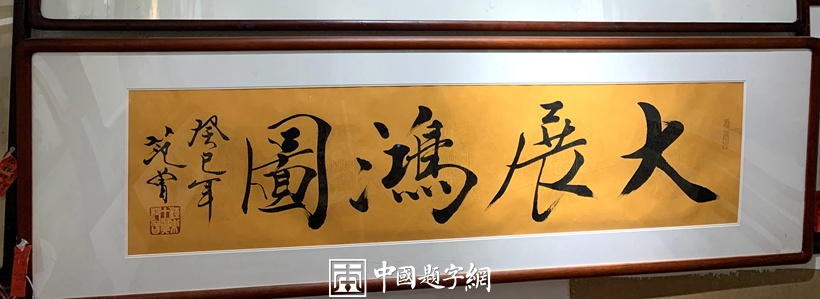 大展鴻圖
癸巳年
范曾
中國題字網